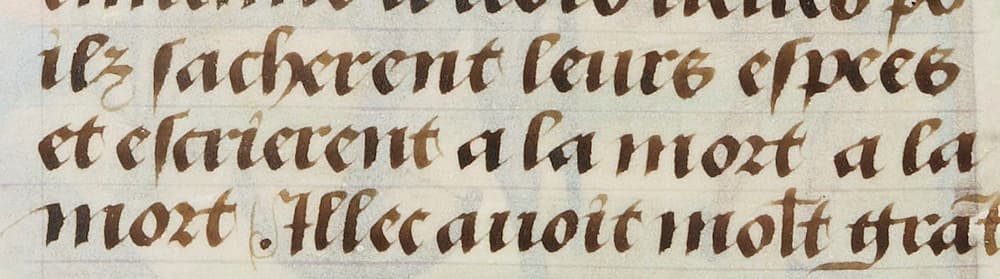 ilz sacherent leurs espees
et escrierent a la mort a la
mort . Illec auoit molt grāt